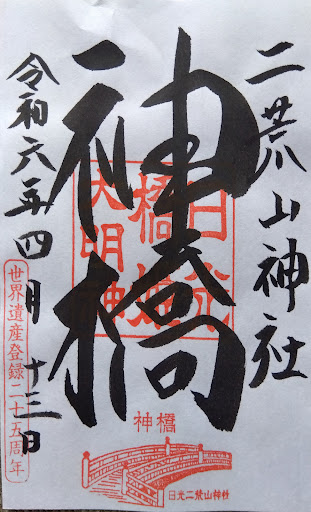 二荒山神社
神橋
日光
橋姫
大明神
令和六年四月十三日
世界遺産登録二十五周年
神橋
日光二荒山神社